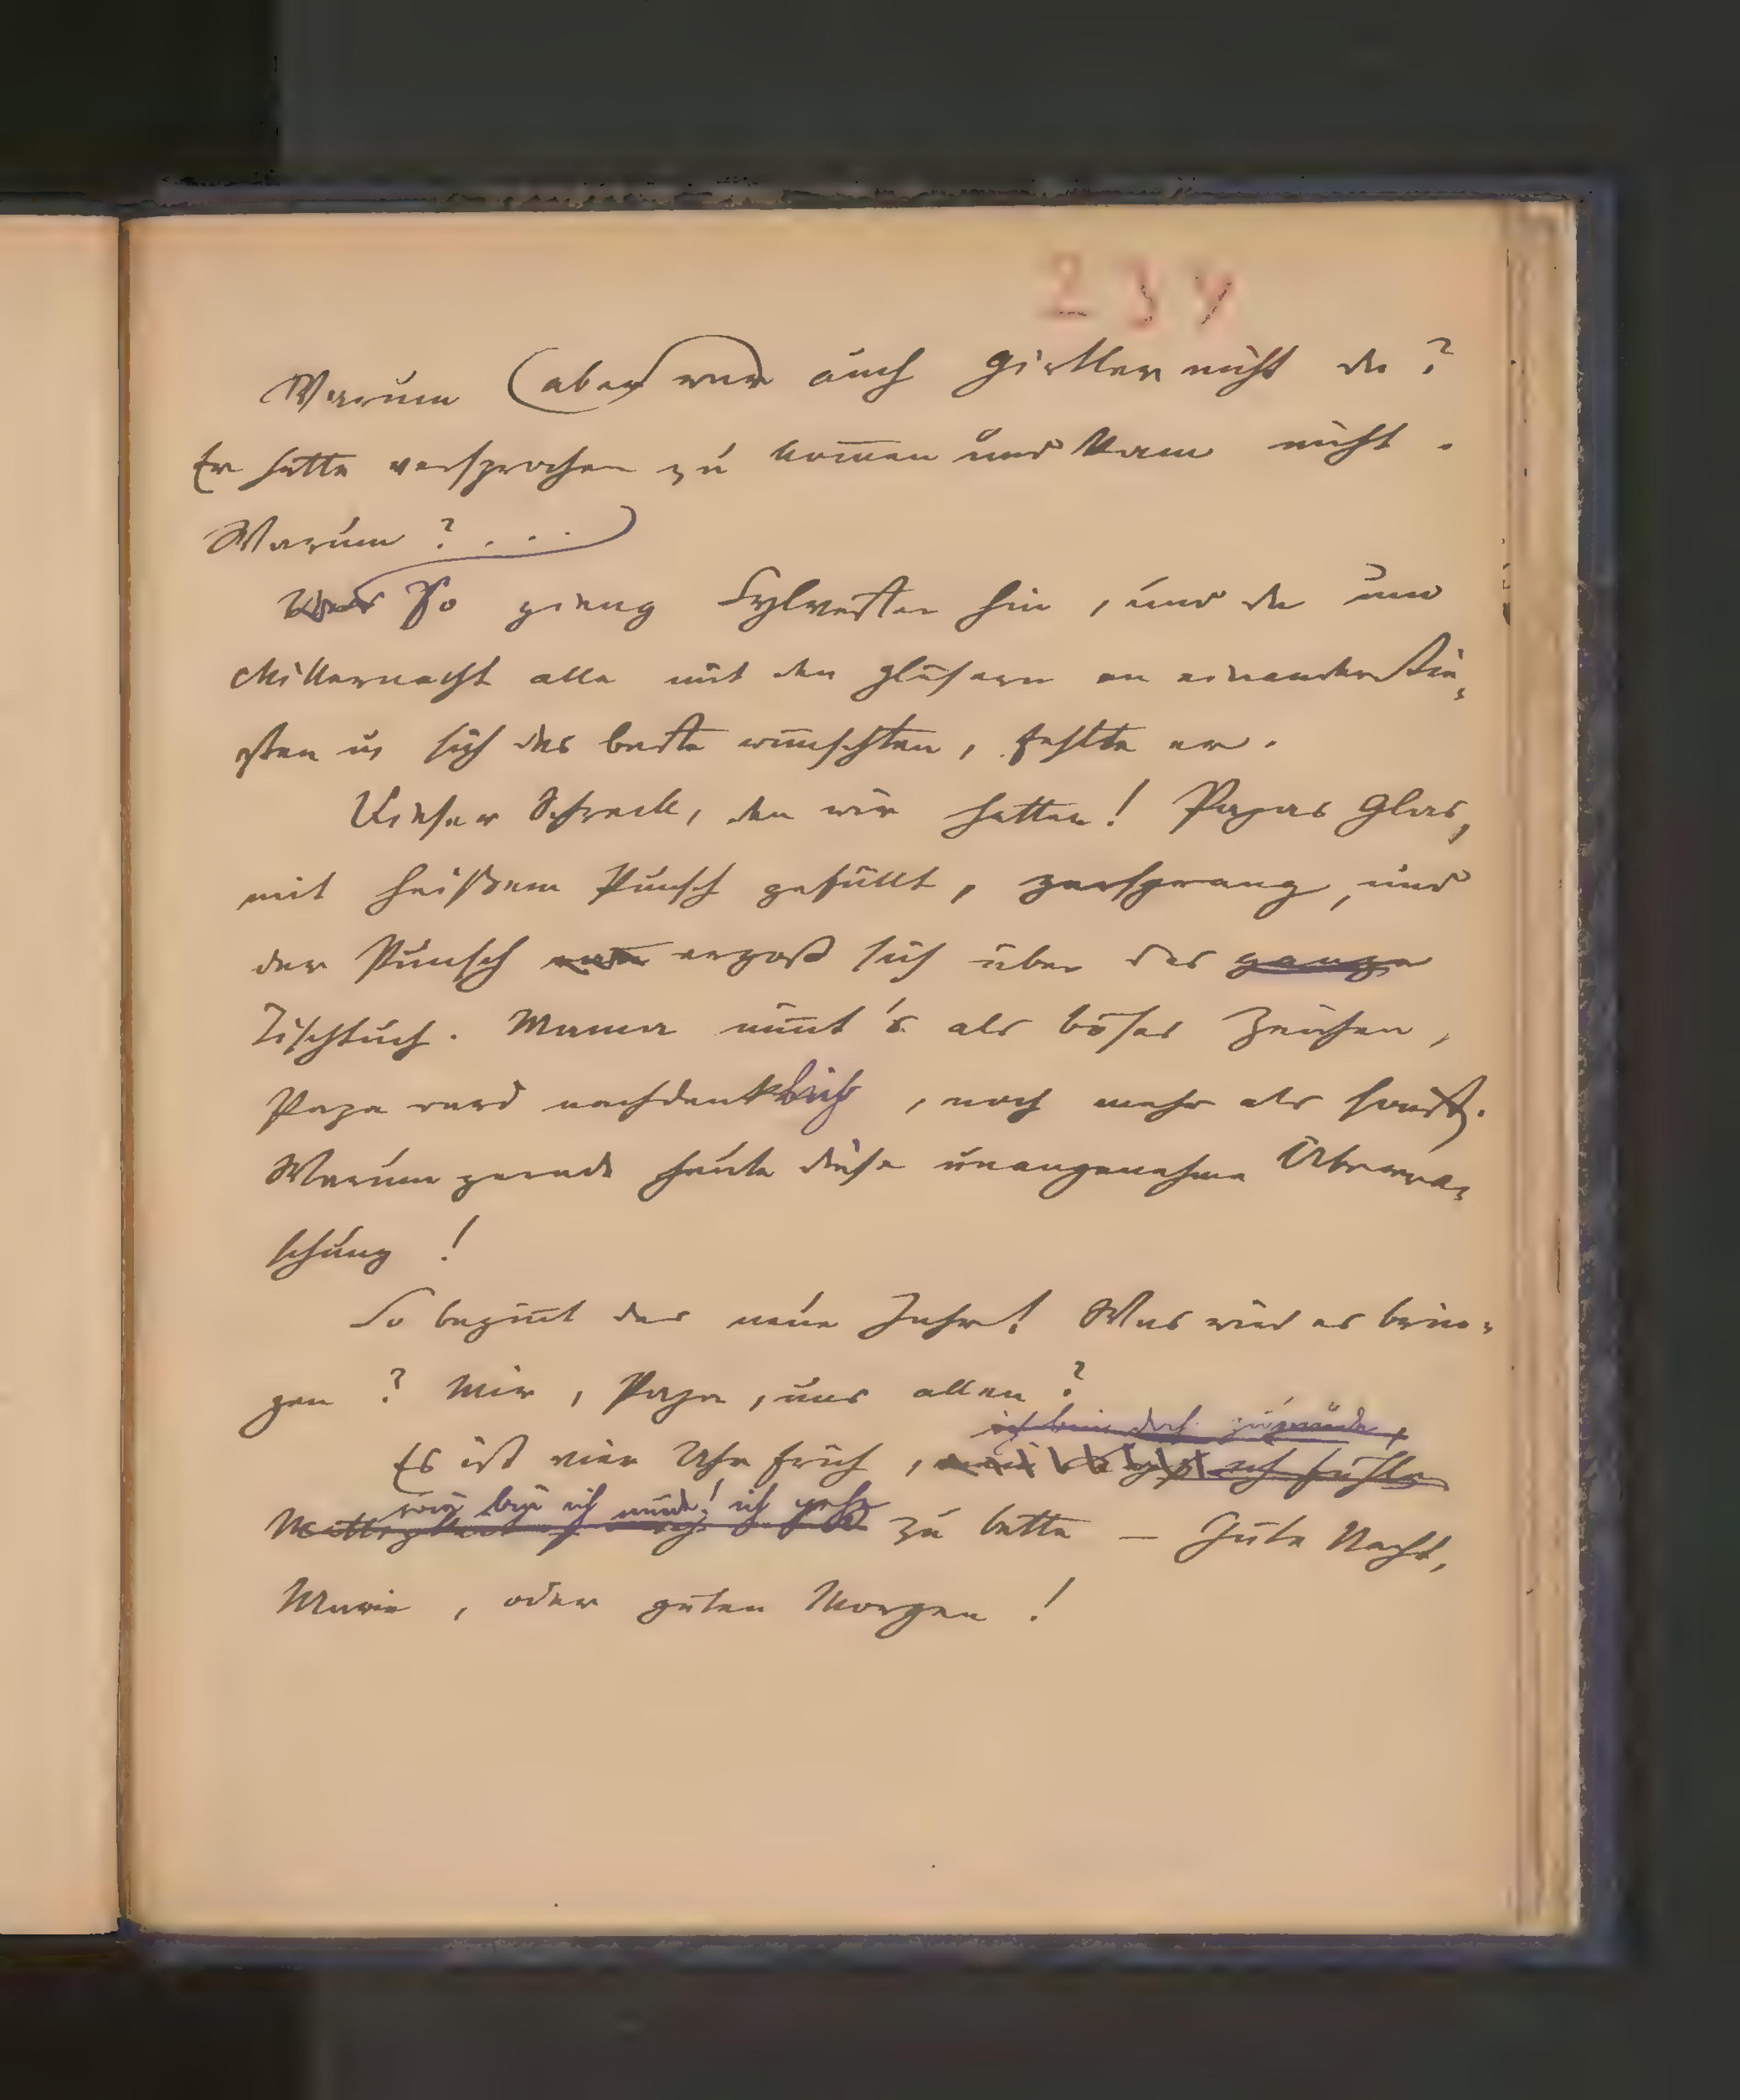 234
Warum aber war auch Girtler nicht da?
Er hatte versprochen zu kom̅en und kam nicht.
Warum? . . .
Und So gieng Sylvester hin, und da um
Mitternacht alle mit den Gläsern an einander stie-
ßen u. sich das beste wünschten, fehlte er.
Dieser Schreck, den wir hatten! Papas Glas,
mit heißem Punsch gefüllt, zersprang, und
der Punsch ergoß sich über das ganze
Tischtuch. Mama nim̅t's als böses Zeichen,
Papa ward nachdenklich, noch mehr als sonst.
Warum gerade heute diese unangenehme Überra-
schung!
So begin̅t das neue Jahr! Was wird es brin-
gen? Mir, Papa, uns allen?
ich bin doch zu müde,
Es ist vier Uhr früh, ich fühle
wie bin ich müde! ich gehe
zu bette — Gute Nacht,
Marie, oder guten Morgen!